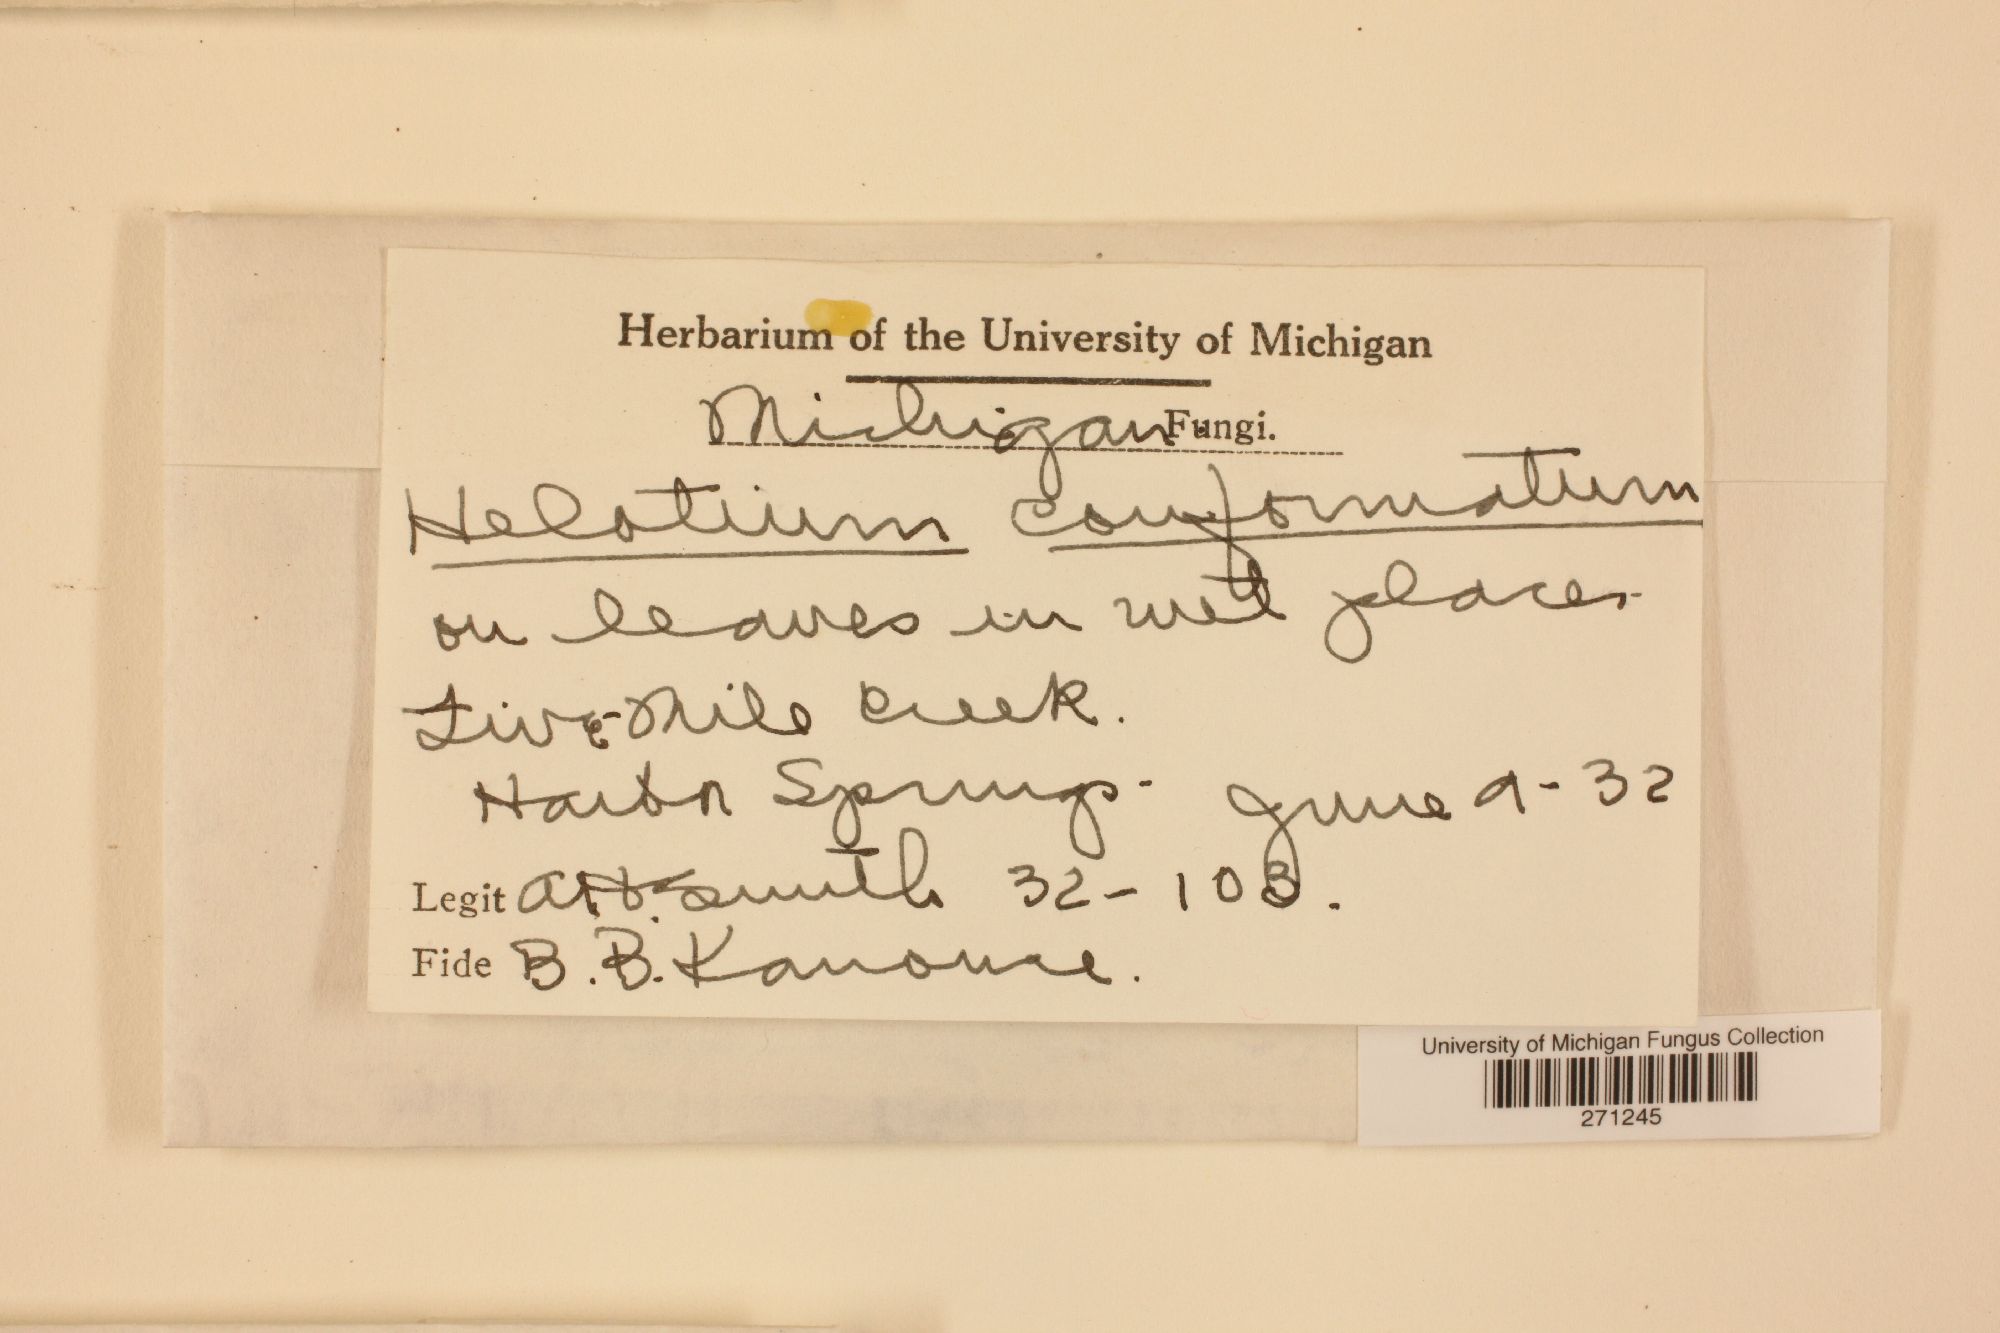 Herbarium of the University of Michigan
Michigan Fungi.
Helotium conformatum
on leaves in wet places.
Five-Mile Creek.
Harbor Springs - June 9-32
Legit A.H. Smith 32-103.
Fide B.B. Kanouse.
University of Michigan Fungus Collection
271245